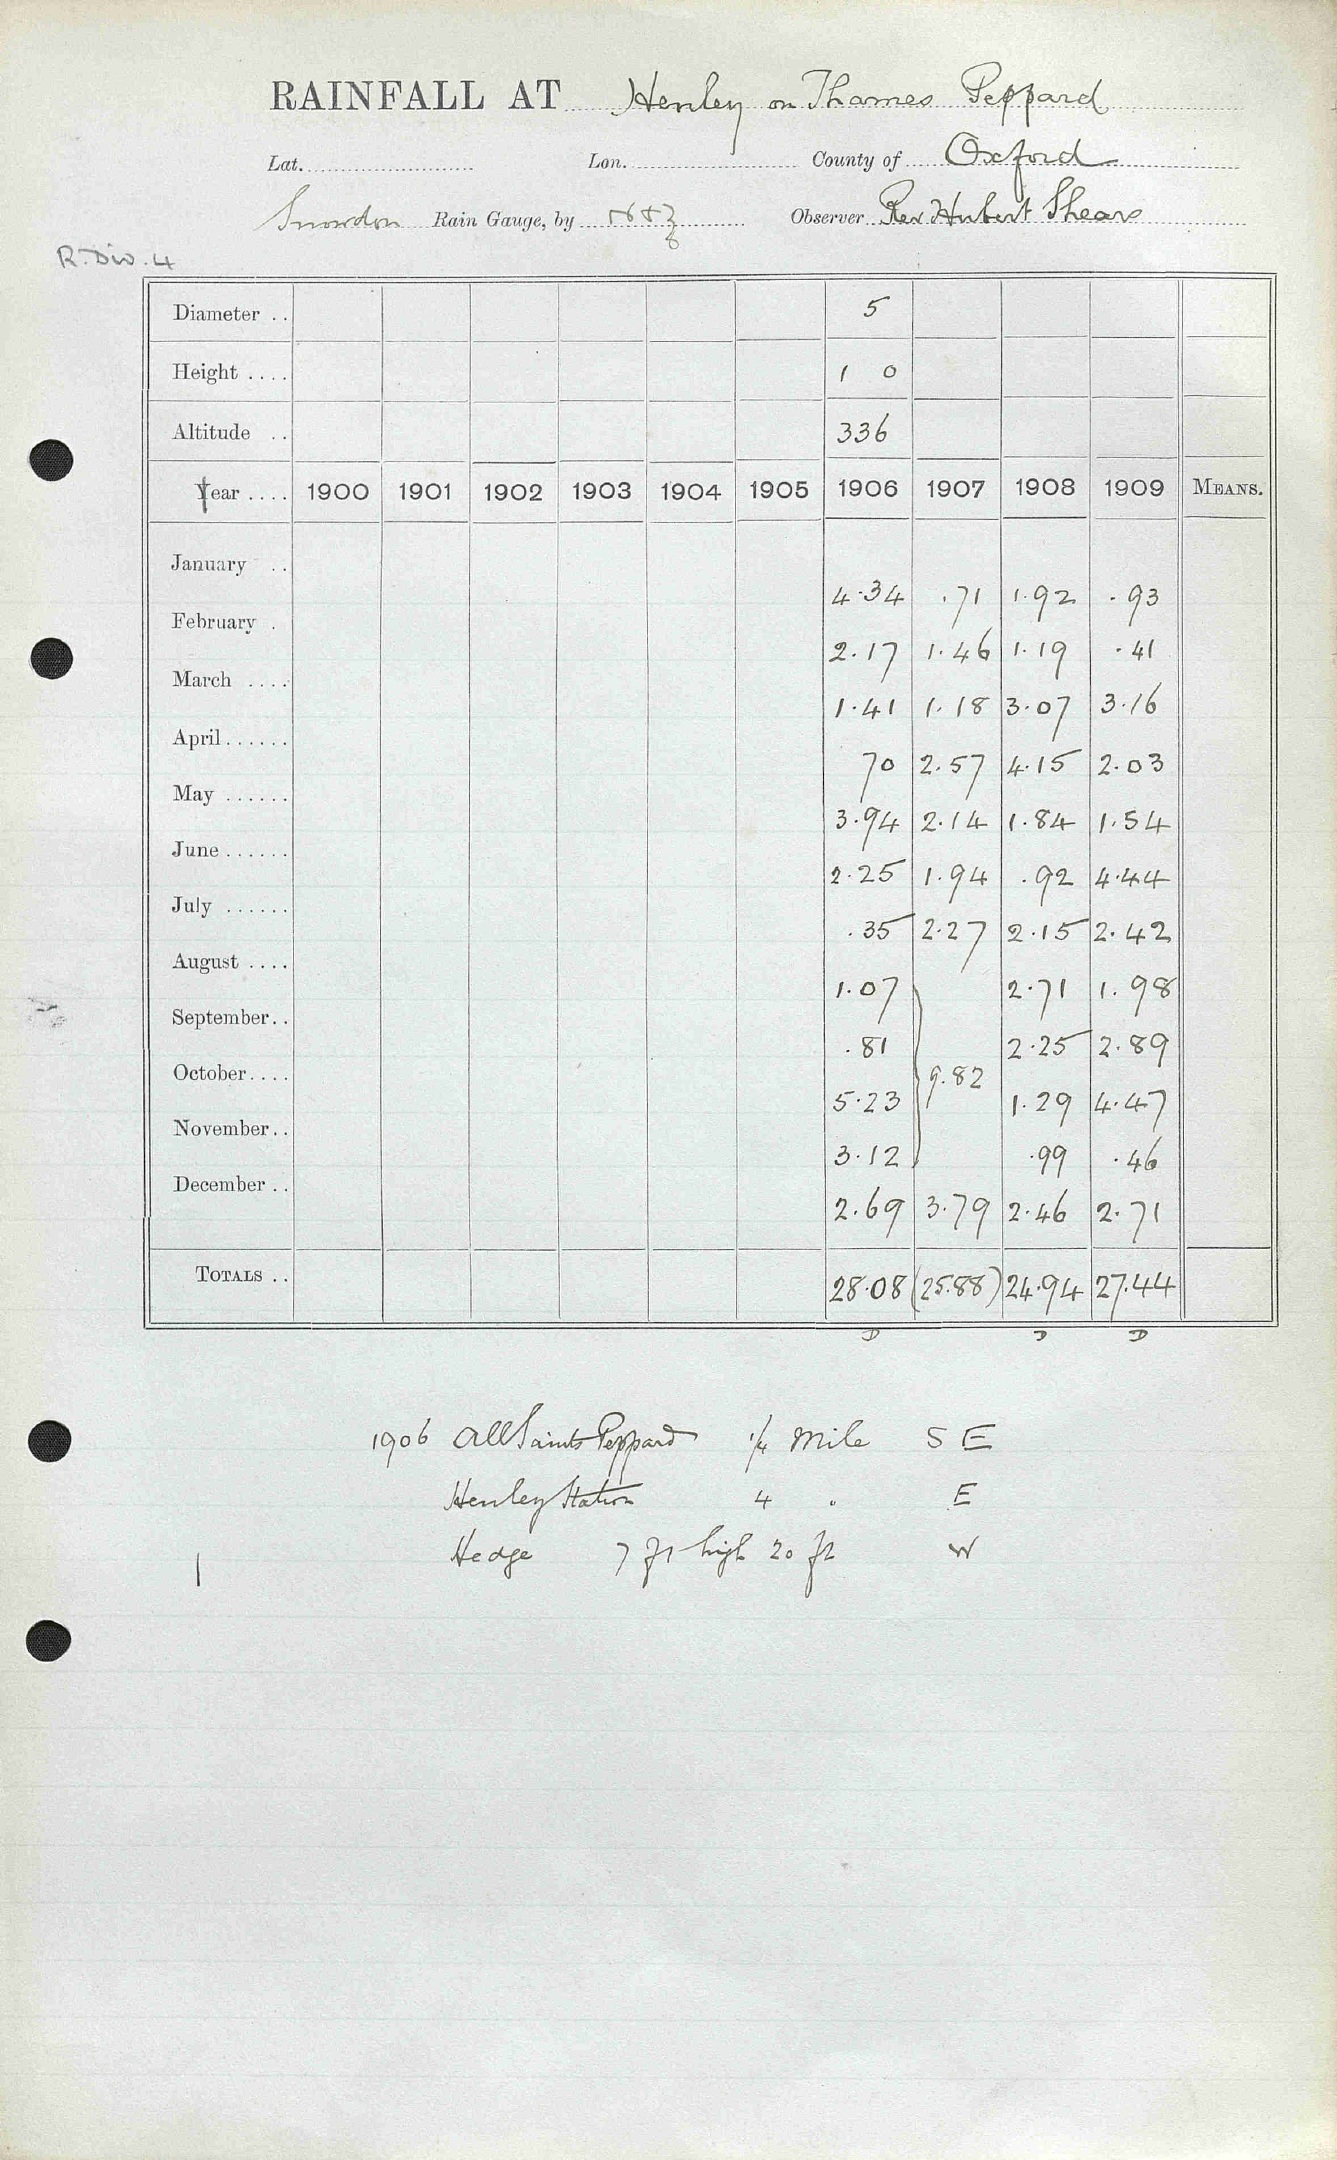 RAINFALL AT Henley on Thames Peppard
Lat. Lon. County of Oxford
Snowdon Rain Gauge, by Observer Rev Hubert Shears
R. Div. 4
Diameter .. 5
Height .... 1 0
Altitude .. 336
Year .... 1900 1901 1902 1903 1904 1905 1906 1907 1908 1909 MEANS.
January ..
4.34 .71 1.92 .93
February .
2.17 1.46 1.19 .41
March ....
1.41 1.18 3.07 3.16
April ......
70 2.57 4.15 2.03
May ......
3.94 2.14 1.84 1.54
June ......
2.25 1.94 .92 4.44
July ......
.35 2.27 2.15 2.42
August ....
1.07 2.71 1.98
September..
.81 2.25 2.89
October....
9.82
5.23 1.29 4.47
November..
3.12 .99 .46
December ..
2.69 3.79 2.46 2.71
TOTALS .. 28.08 (25.88) 24.94 27.44
D D D
1906 All Saints Peppard 1/4 Mile S E
Henley Station 4 " E
Hedge 7 ft high 20 ft W